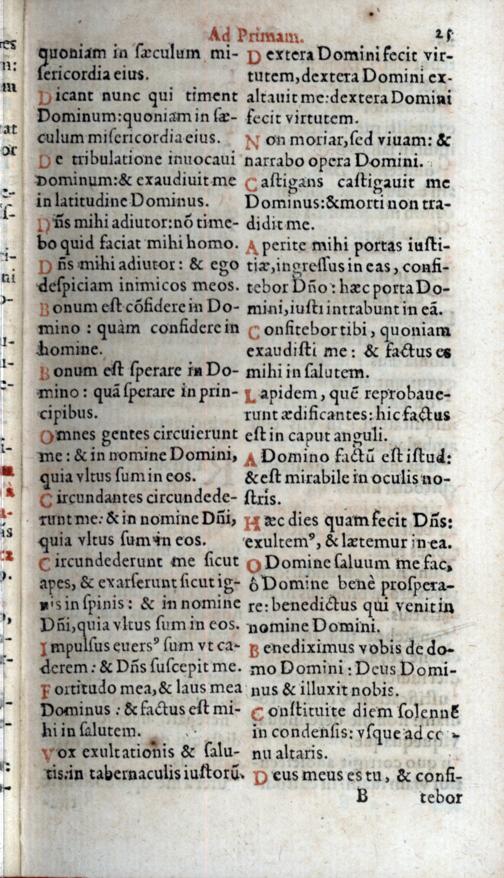 Ad Primam. 25
quoniam in sæculum mi-
ſericordia eius.
Dicant nunc qui timent
Dominum:quoniam in ſæ-
culum miſericordia eius.
De tribulatione inuocaui
Dominum:& exaudiuit me
in latitudine Dominus.
Dñs mihi adiutor:nõ time-
bo quid faciat mihi homo.
Dñs mihi adiutor: & ego
deſpiciam inimicos meos.
Bonum eſt cõfidere in Do-
mino : quàm confidere in
homine.
Bonum eſt ſperare in Do-
mino: quã ſperare in prin-
cipibus.
Omnes gentes circuierunt
me: & in nomine Domini,
quia vltus ſum in eos.
Circundantes circundede-
runt me: & in nomine Dñi,
quia vltus ſum in eos.
Circundederunt me ſicut
apes, & exarſerunt ſicut ig-
nis in ſpinis: & in nomine
Dñi,quia vltus ſum in eos.
Impulſus euersꝰ ſum vt ca-
derem: & Dñs ſuſcepit me.
Fortitudo mea,& laus mea
Dominus : & factus eſt mi-
hi in ſalutem.
Vox exultationis & ſalu-
tis:in tabernaculis iuſtorũ.
Dextera Domini fecit vir-
tutem,dextera Domini ex-
altauit me:dextera Domini
fecit virtutem.
Non moriar,ſed viuam: &
narrabo opera Domini.
Caſtigans caſtigauit me
Dominus:&morti non tra-
didit me.
Aperite mihi portas iuſti-
tiæ,ingreſſus in eas, confi-
tebor Dño: hæc porta Do-
mini,iuſti intrabunt in eã.
Confitebor tibi, quoniam
exaudiſti me: & factus es
mihi in ſalutem.
Lapidem, quẽ reprobaue-
runt ædificantes: hic factus
eſt in caput anguli.
A Domino factũ eſt iſtud:
& eſt mirabile in oculis no-
ſtris.
Hæc dies quam fecit Dñs:
exultemꝰ, & lætemur in ea.
O Domine ſaluum me fac,
ô Domine benè proſpera-
re: benedictus qui venit in
nomine Domini.
Benediximus vobis de do-
mo Domini : Deus Domi-
nus & illuxit nobis.
Conſtituite diem ſolennẽ
in condenſis: vſque ad co-
nu altaris.
Deus meus es tu, & confi-
B tebor